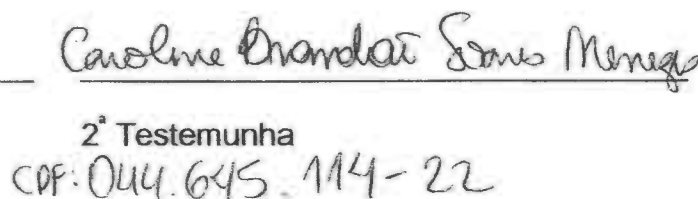 Caroline Brandão Soares Menezes
2ª Testemunha
CPF: 044.645.114-22